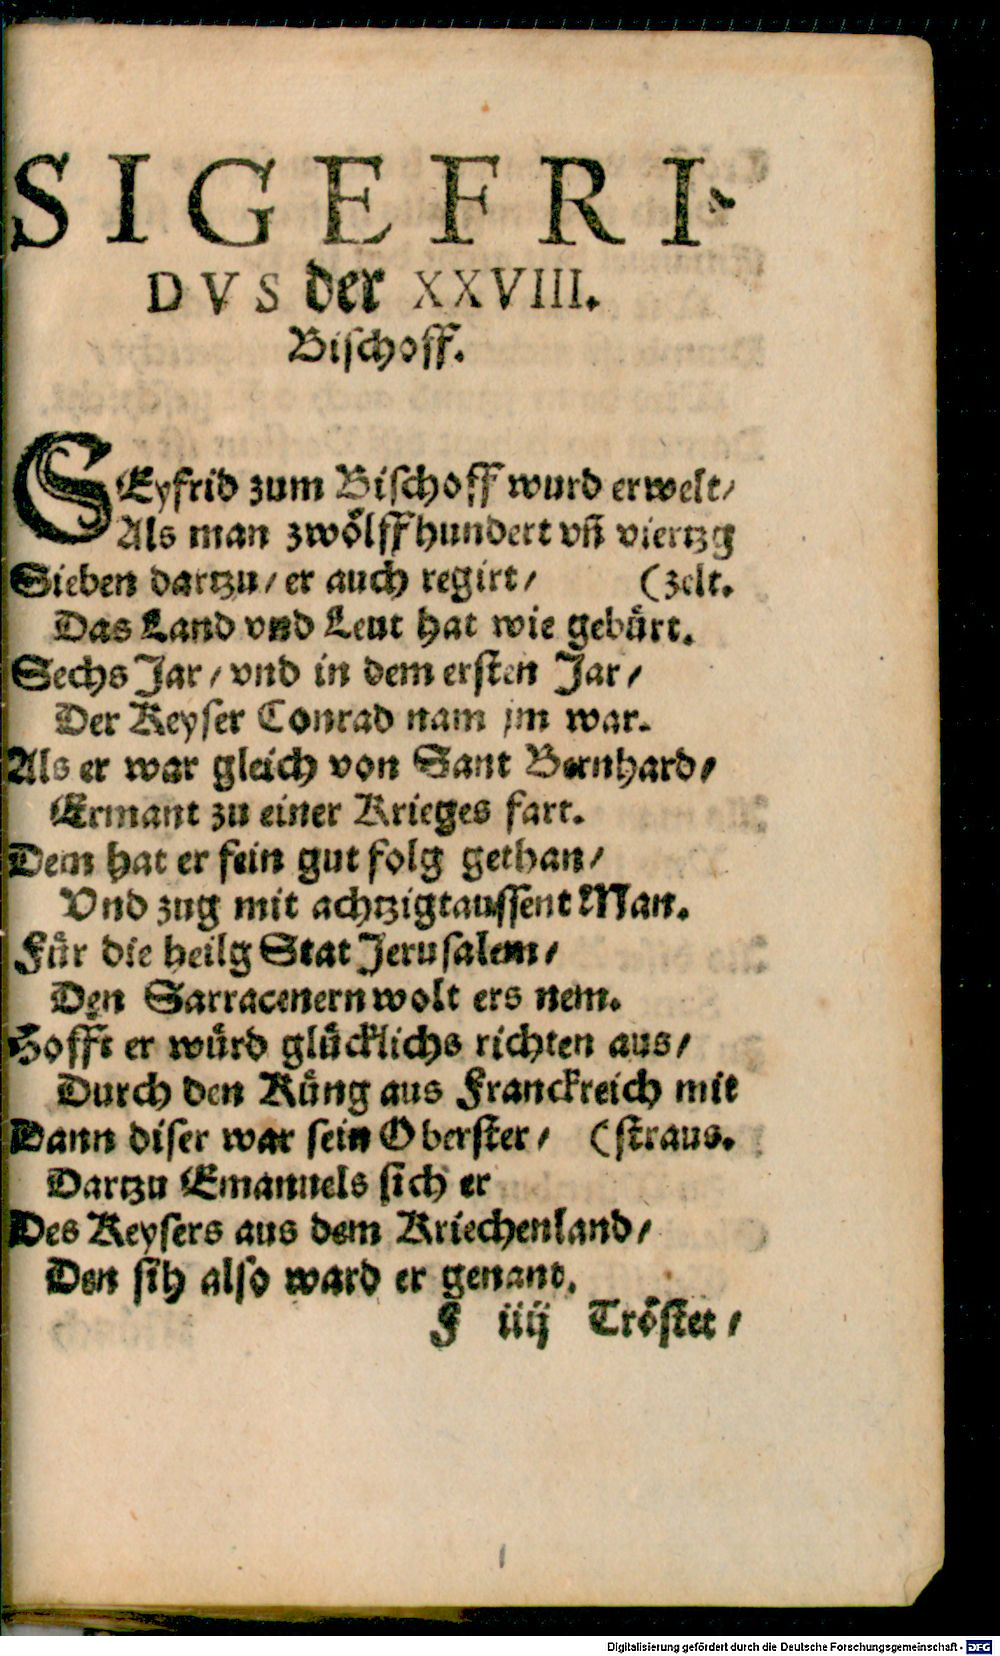 SIGEFRI-
DVS der XXVIII.
Bischoff.
SEyfrid zum Bischoff wurd erwelt/
Als man zwoͤlffhundert vñ viertzg
Sieben dartzu/ er auch regirt/ (zelt.
Das Land vnd Leut hat wie gebuͤrt.
Sechs Jar/ vnd in dem ersten Jar/
Der Keyser Conrad nam jm war.
Als er war gleich von Sant Bernhard/
Ermant zu einer Krieges fart.
Dem hat er fein gut folg gethan/
Vnd zug mit achtzigtaussent Man.
Fuͤr die heilg Stat Jerusalem/
Den Sarracenern wolt ers nem.
Hofft er wuͤrd gluͤcklichs richten aus/
Durch den Kuͤng aus Franckreich mit
Dann diser war sein Oberster/ (straus.
Dartzu Emanuels sich er
Des Keysers aus dem Kriechenland/
Den sih also ward er genant.
F iiij Troͤstet/
Digitalisierung gefördert durch die Deutsche Forschungsgemeinschaft - DFG